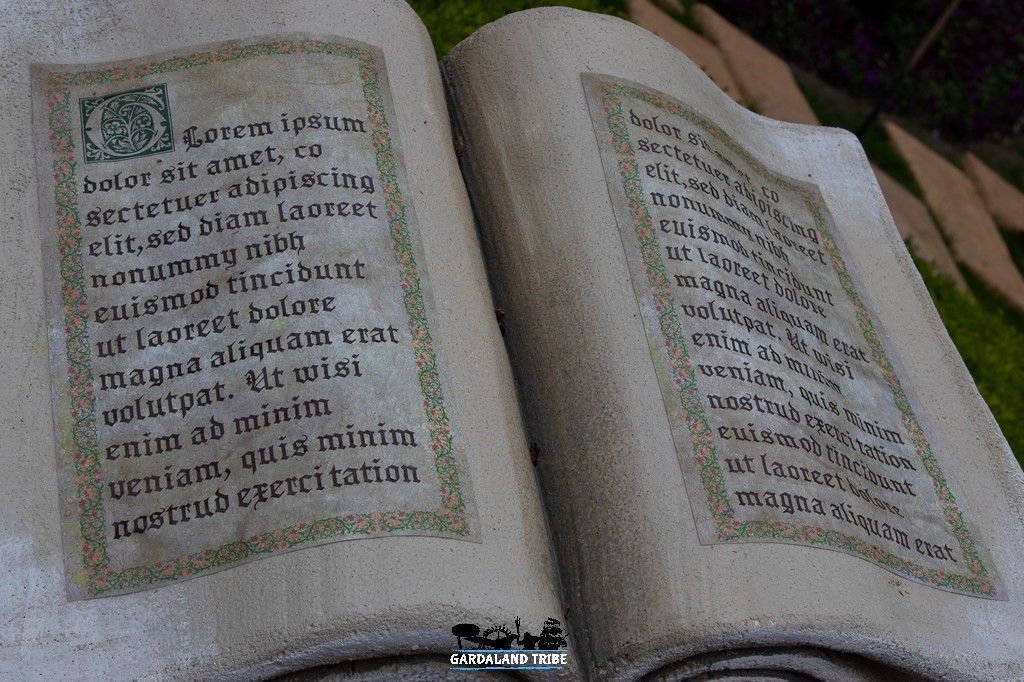 C Lorem ipsum
dolor sit amet, co
sectetuer adipiscing
elit, sed diam laoreet
nonummy nibh
euismod tincidunt
ut laoreet dolore
magna aliquam erat
volutpat. Ut wisi
enim ad minim
veniam, quis minim
nostrud exerci tation
dolor sit amet, co
sectetuer adipiscing
elit, sed diam laoreet
nonummy nibh
euismod tincidunt
ut laoreet dolore
magna aliquam erat
volutpat. Ut wisi
enim ad minim
veniam, quis minim
nostrud exerci tation
euismod tincidunt
ut laoreet dolore
magna aliquam erat
GARDALAND TRIBE